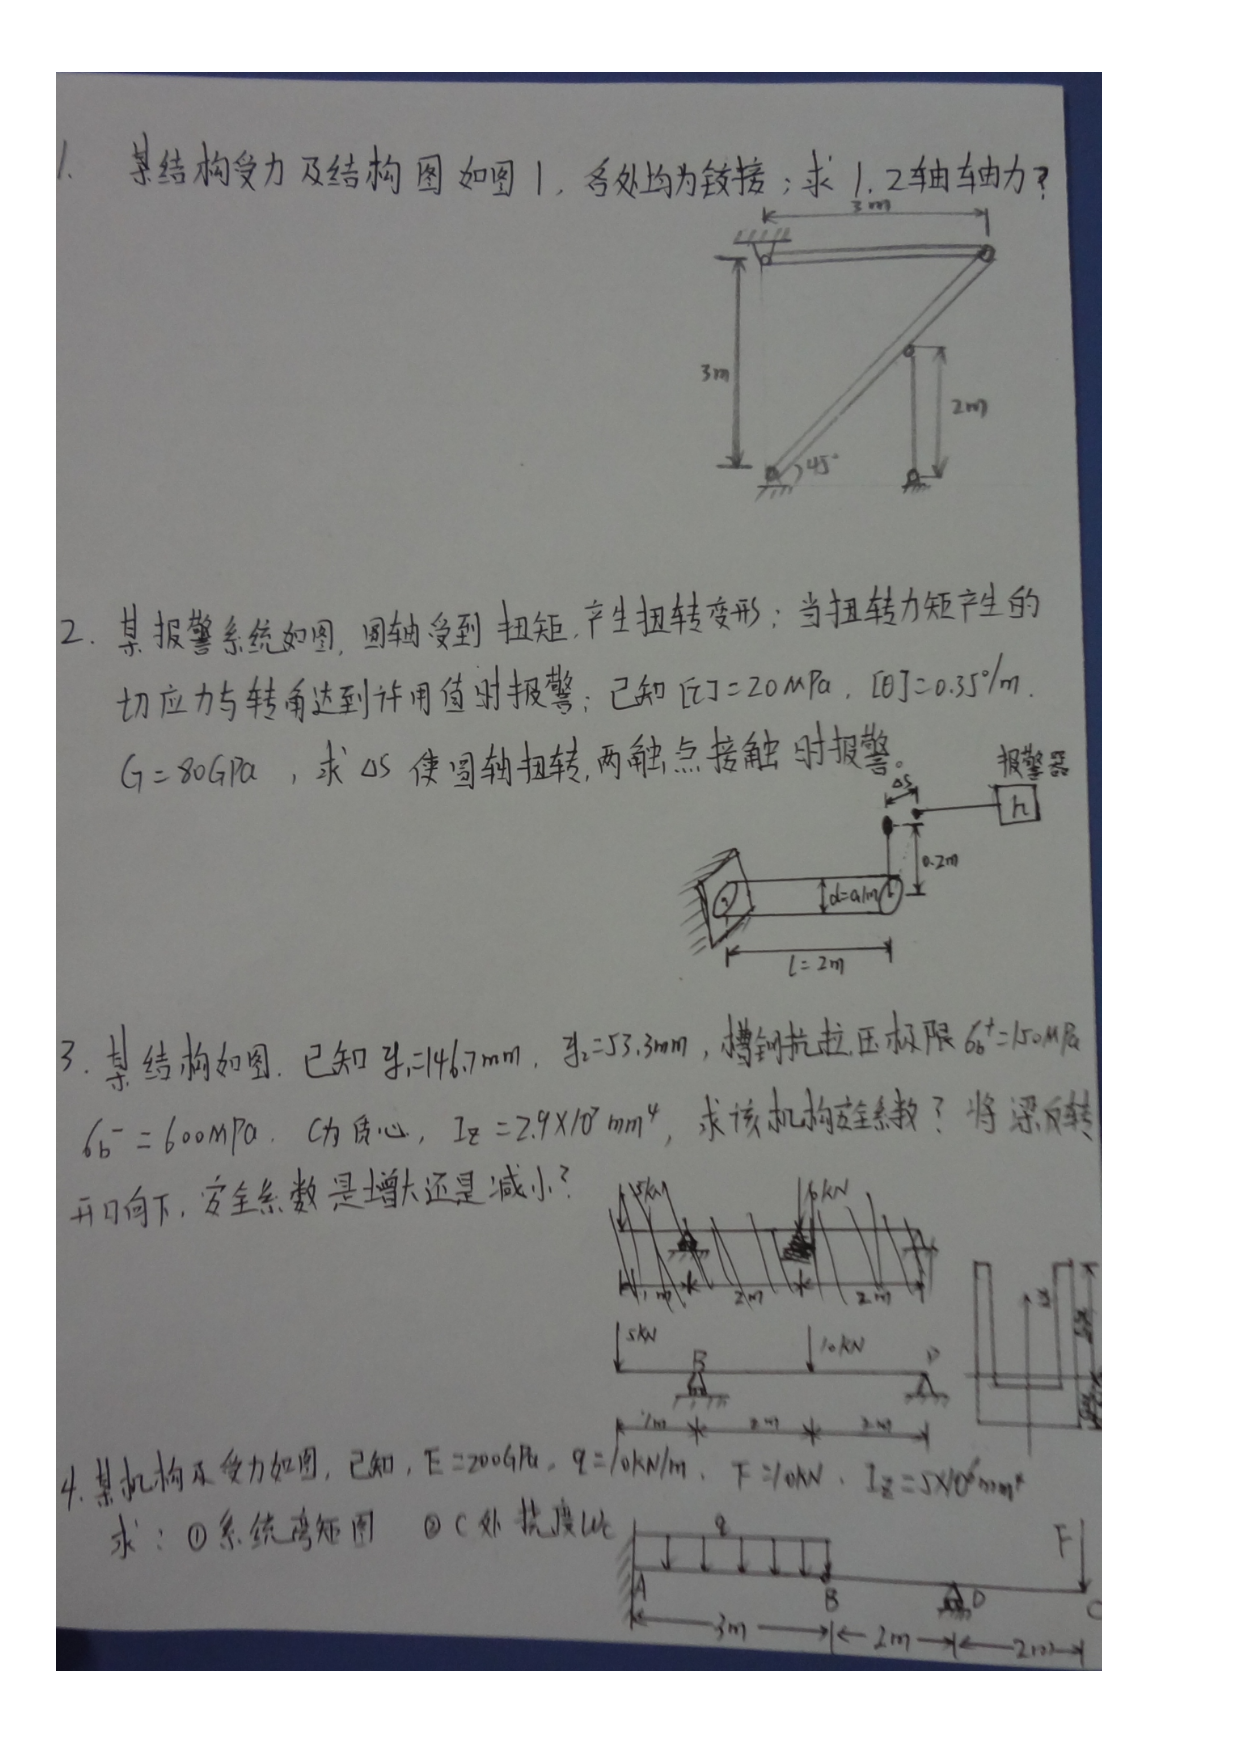 1. 某结构受力及结构图如图1,各处均为铰接;求1.2轴轴力?
3m
3m
2m
45°
2. 某报警系统如图,圆轴受到扭矩,产生扭转变形;当扭转力矩产生的
切应力与转角达到许用值时报警;已知[τ]=20MPa,[θ]=0.35°/m.
G=80GPa,求ΔS使圆轴扭转,两触点接触时报警。
报警器
ΔS
h
0.2m
l=2m
3. 某结构如图.已知y₁=146.7mm,y₂=53.3mm,槽钢抗拉.压极限σb⁺=150MPa
σb⁻=600MPa. C为质心,Iz=2.9×10⁷mm⁴,求该机构安全系数?将梁反转
开口向下,安全系数是增大还是减小?
5kN
1m 2m 2m
5kN
B
10kN
D
1m 2m 2m
4. 某机构及受力如图,已知,E=200GPa,q=10kN/m、F=10kN、Iz=5×10⁶mm⁴
求:①系统弯矩图 ②C处挠度ωc
q
F
A B D C
3m 2m 2m